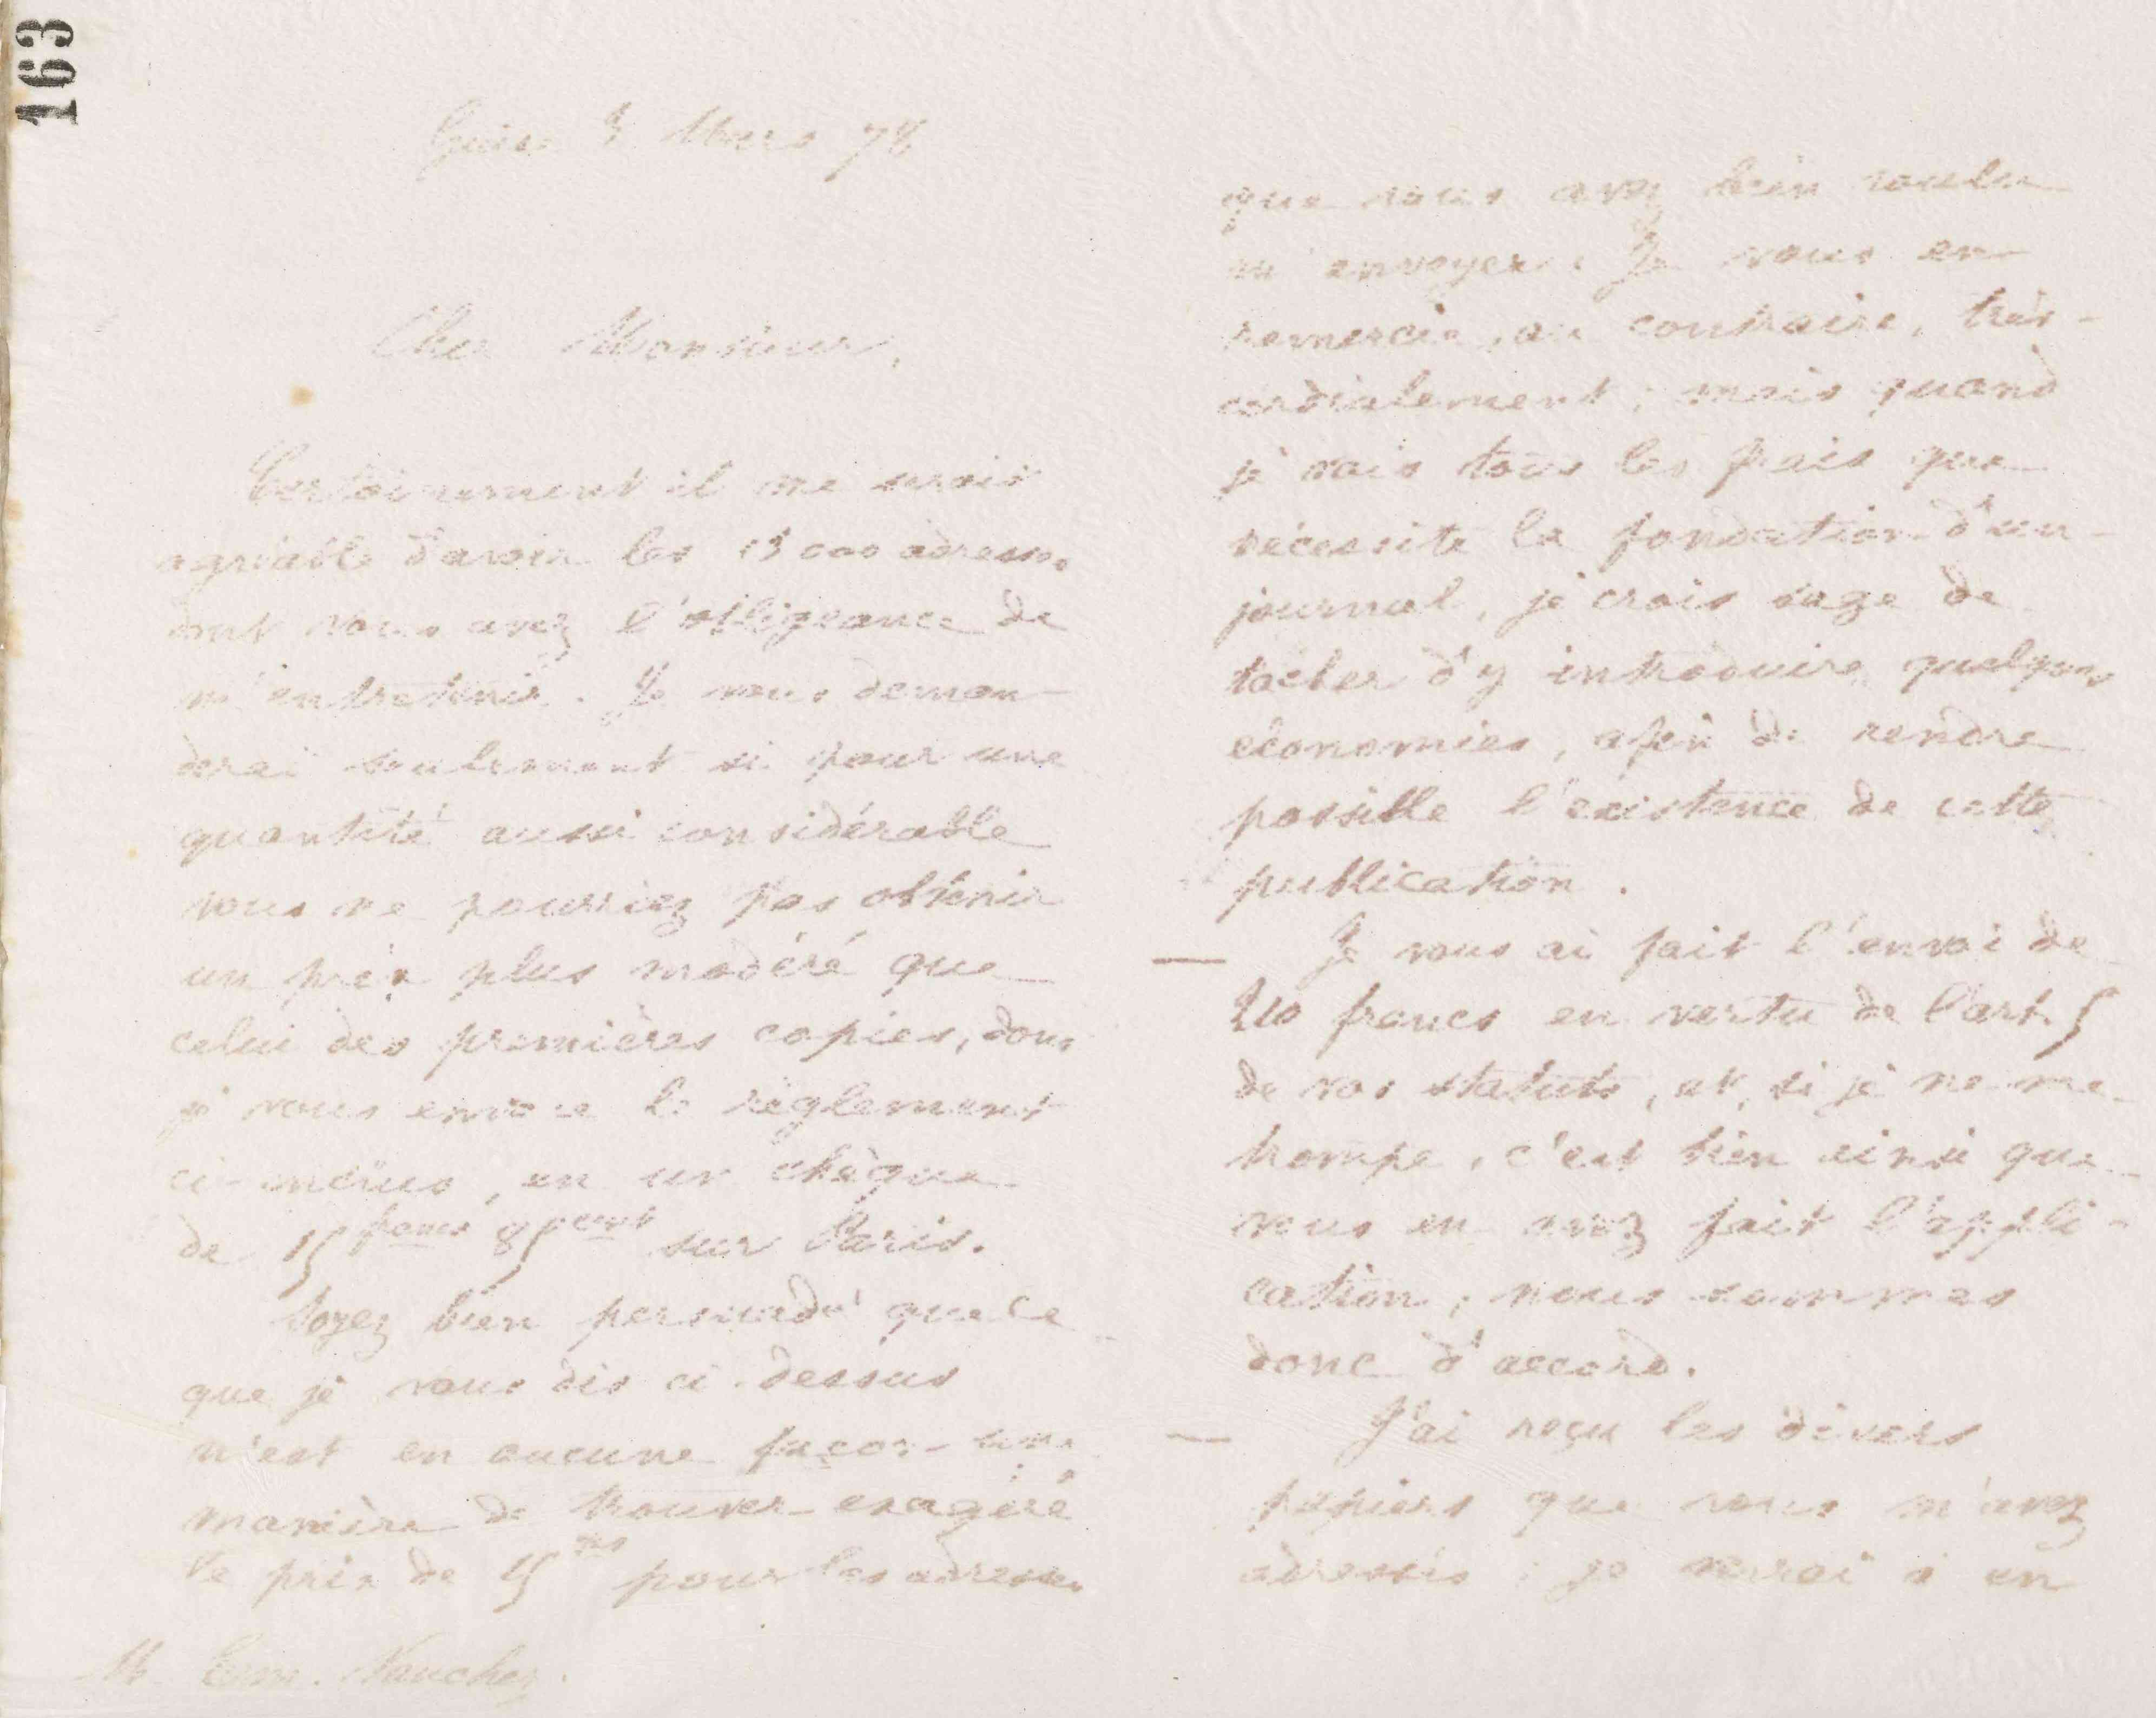 163
Guise 3 Mars 78
Cher Monsieur,
Certainement il me serait
agréable d'avoir les 15000 adresses
dont vous avez l'obligeance de
m'entretenir. Je vous deman-
derai seulement si pour une
quantité aussi considérable
vous ne pourriez pas obtenir
un prix plus modéré que
celui des premières copies, dont
je vous envoie le règlement
ci-inclus, en un chèque
de 15 francs 85 cent sur Paris.
Soyez bien persuadé que ce
que je vous dis ci-dessus
n'est en aucune façon une
manière de trouver exagéré
le prix de 15 pour les adresses
M. Em. Nauchez.
que vous avez bien voulu
m'envoyer. Je vous en
remercie, au contraire, très-
cordialement; mais quand
je vois tous les frais que
nécessite la fondation d'un
journal, je crois sage de
tacher d'y introduire quelques
économies, afin de rendre
possible l'existence de cette
publication.
— Je vous ai fait l'envoi de
210 francs en vertu de l'art. 5
de vos statuts, et, si je ne me
trompe, c'est bien ainsi que
vous en avez fait l'appli-
cation; nous sommes
donc d'accord.
— J'ai reçu les divers
papiers que vous m'avez
adressés; je verrai à en